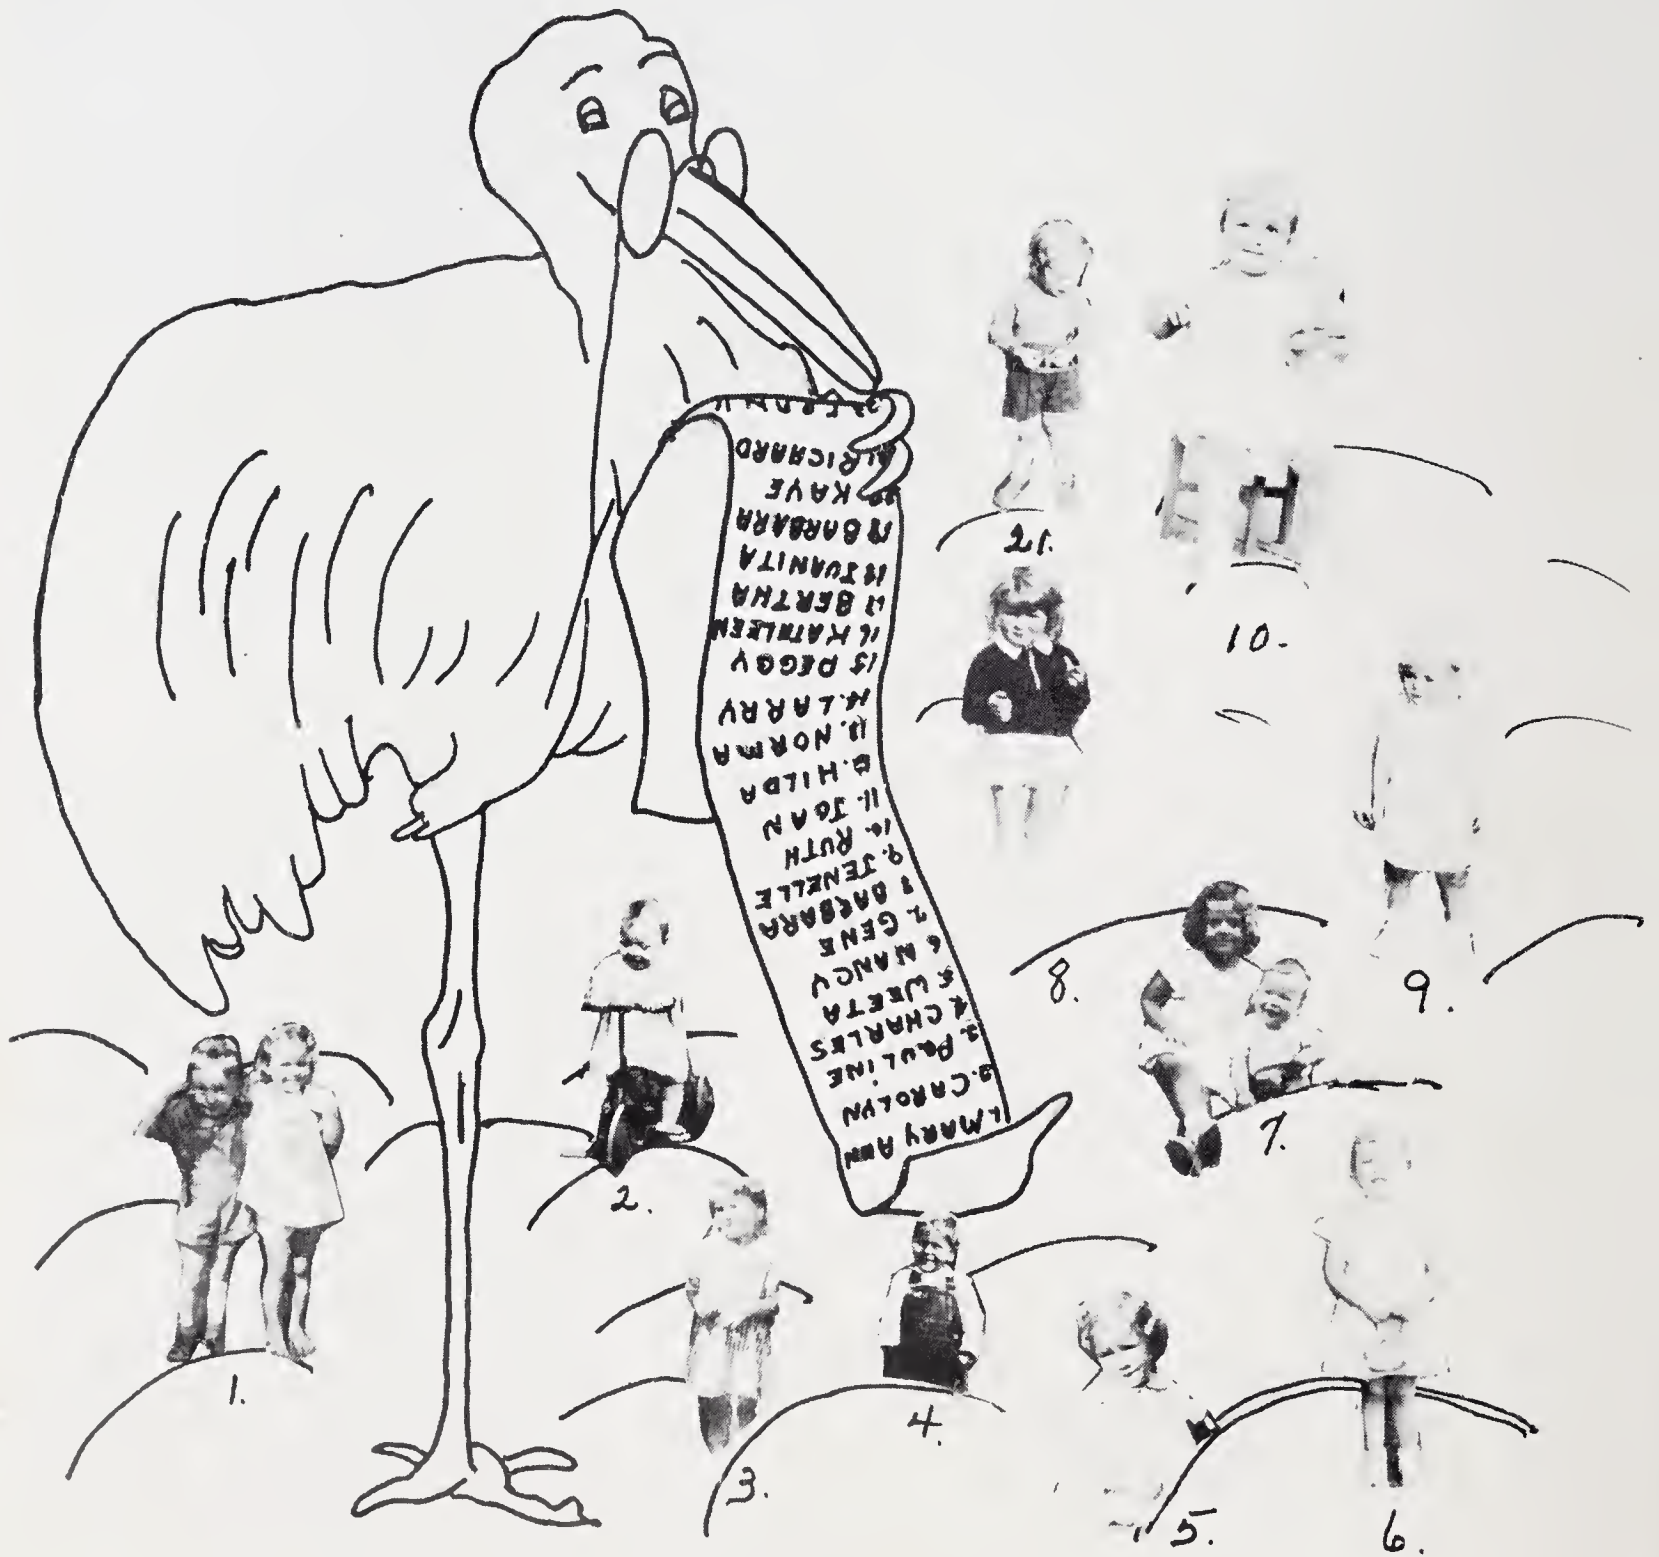 1. MARY ANN
2. CAROLYN
3. PAULINE
4. CHARLES
5. WEETA
6 NANCY
7. GENE
8 BARBARA
9. JENELLE
10. RUTH
11. JOAN
12. HILDA
13. NORMA
14. LARRY
15 PEGGY
16 KATHLEEN
17 BERTHA
18 JUANITA
19 BARBARA
20 KAYE
21 RICHARD
21.
10.
8.
9.
7.
2.
1.
4.
3.
5.
6.